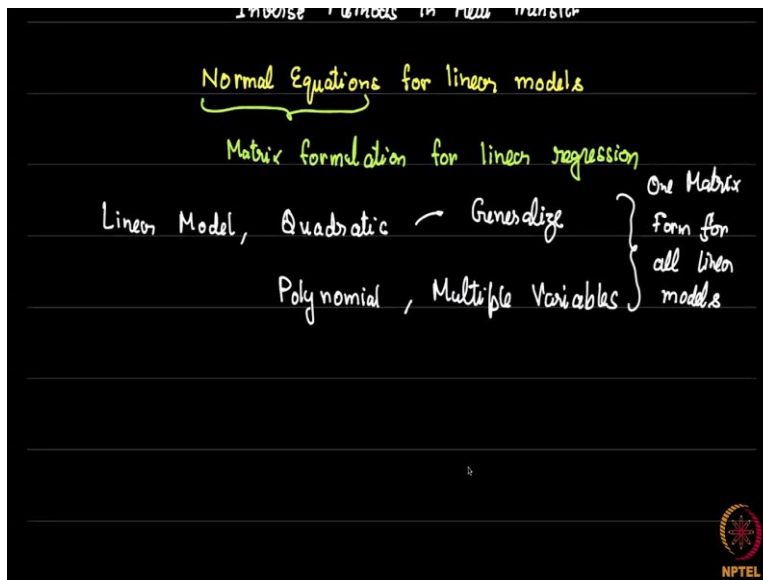 Inverse Methods in Heat Transfer
Normal Equations for linear models
Matrix formulation for linear regression
Linear Model, Quadratic - Generalize
Polynomial, Multiple Variables
One Matrix
form for
all linear
models
NPTEL